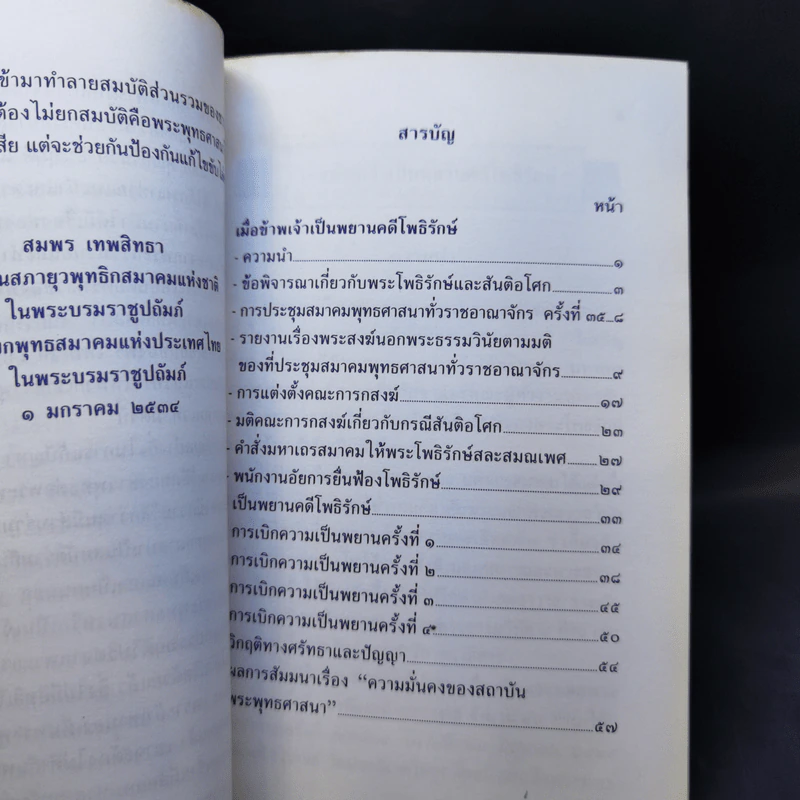 ข้ามาทำลายสมบัติส่วนรวมของ
ต้องไม่ยกสมบัติคือพระพุทธศาสน
สีย แต่จะช่วยกันป้องกันแก้ไขขับ
สมพร เทพสิทธา
นสภายุวพุทธิกสมาคมแห่งชาติ
ในพระบรมราชูปถัมภ์
กพุทธสมาคมแห่งประเทศไทย
ในพระบรมราชูปถัมภ์
๑ มกราคม ๒๕๓๔
สารบัญ
หน้า
เมื่อข้าพเจ้าเป็นพยานคดีโพธิรักษ์
- ความนำ ๑
- ข้อพิจารณาเกี่ยวกับพระโพธิรักษ์และสันติอโศก ๓
- การประชุมสมาคมพุทธศาสนาทั่วราชอาณาจักร ครั้งที่ ๓๕ ๘
- รายงานเรื่องพระสงฆ์นอกพระธรรมวินัยตามมติ
ของที่ประชุมสมาคมพุทธศาสนาทั่วราชอาณาจักร ๙
- การแต่งตั้งคณะการกสงฆ์ ๑๗
- มติคณะการกสงฆ์เกี่ยวกับกรณีสันติอโศก ๒๓
- คำสั่งมหาเถรสมาคมให้พระโพธิรักษ์สละสมณเพศ ๒๗
- พนักงานอัยการยื่นฟ้องโพธิรักษ์ ๒๙
เป็นพยานคดีโพธิรักษ์ ๓๓
การเบิกความเป็นพยานครั้งที่ ๑ ๓๔
การเบิกความเป็นพยานครั้งที่ ๒ ๓๘
การเบิกความเป็นพยานครั้งที่ ๓ ๔๕
การเบิกความเป็นพยานครั้งที่ ๔ ๕๐
วิกฤติทางศรัทธาและปัญญา ๕๔
ผลการสัมมนาเรื่อง “ความมั่นคงของสถาบัน
พระพุทธศาสนา” ๕๗